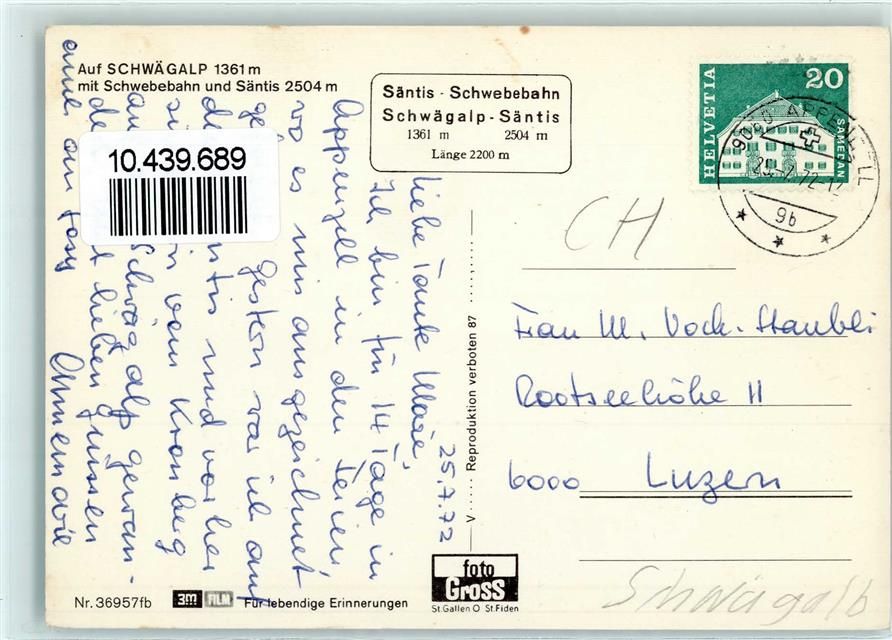 Auf SCHWÄGALP 1361 m
mit Schwebebahn und Säntis 2504 m
Säntis - Schwebebahn
Schwägalp - Säntis
1361 m 2504 m
Länge 2200 m
HELVETIA
20
SAMEDAN
9050 APPENZELL
25.-7.72-12
9b
10.439.689
CH
25.7.72
Liebe Tante Marie,
Ich bin für 14 Tage in
Appenzell in den Ferien,
wo es mir ausgezeichnet
gestern war ich auf
und vorher
vom Kronberg
Schwägalp gewan-
lieben Grüssen
Annemarie
V Reproduktion verboten 87
Frau M. Vock-Staubli
Rootseehöhe 11
6000 Luzern
Schwägalb
foto
Gross
St.Gallen O St.Fiden
Nr. 36957fb
3M FILM
Für lebendige Erinnerungen